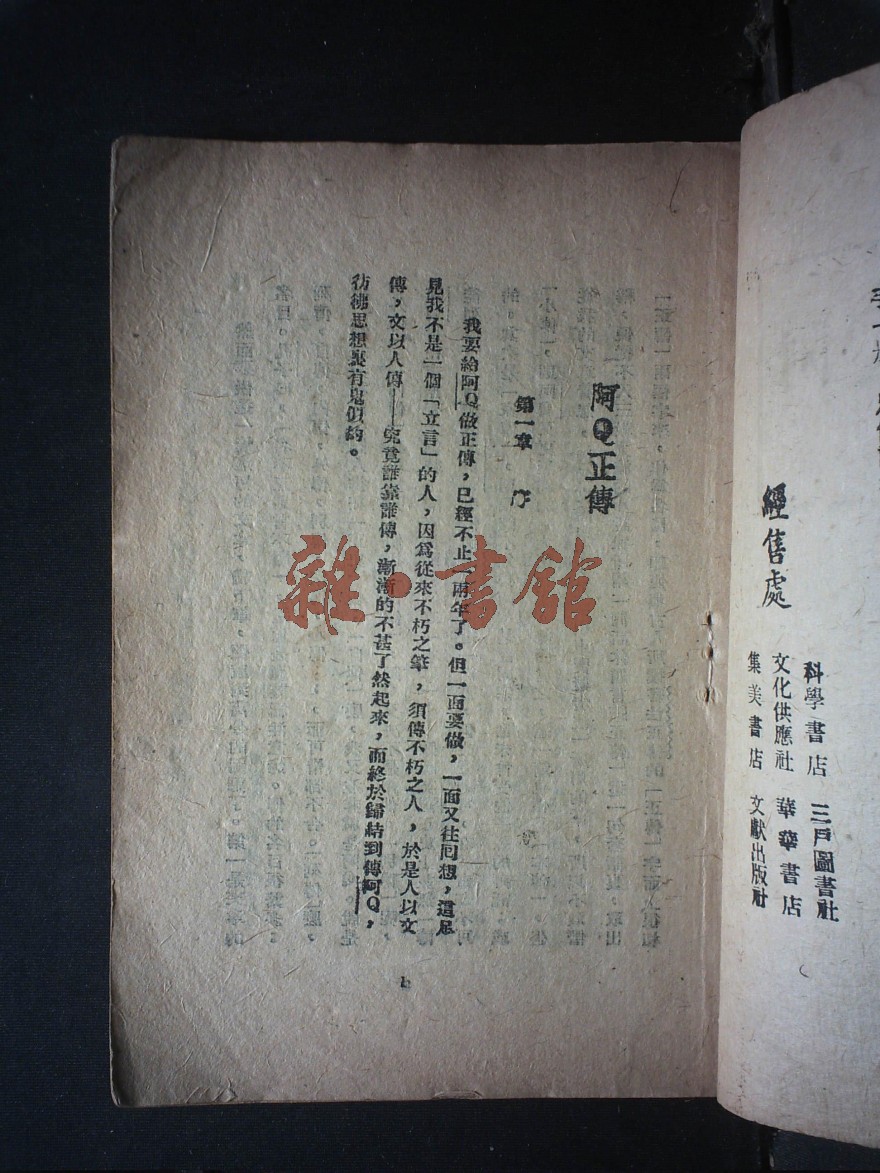 經售處
科學書店 三戶圖書社
文化供應社 華華書店
集美書店 文獻出版社
阿Q正傳
第一章 序
我要給阿Q做正傳，已經不止一兩年了。但一面要做，一面又往回想，這足
見我不是一個「立言」的人，因爲從來不朽之筆，須傳不朽之人，於是人以文
傳，文以人傳——究竟誰靠誰傳，漸漸的不甚了然起來，而終於歸結到傳阿Q，
彷彿思想裏有鬼似的。
1
雜·書館